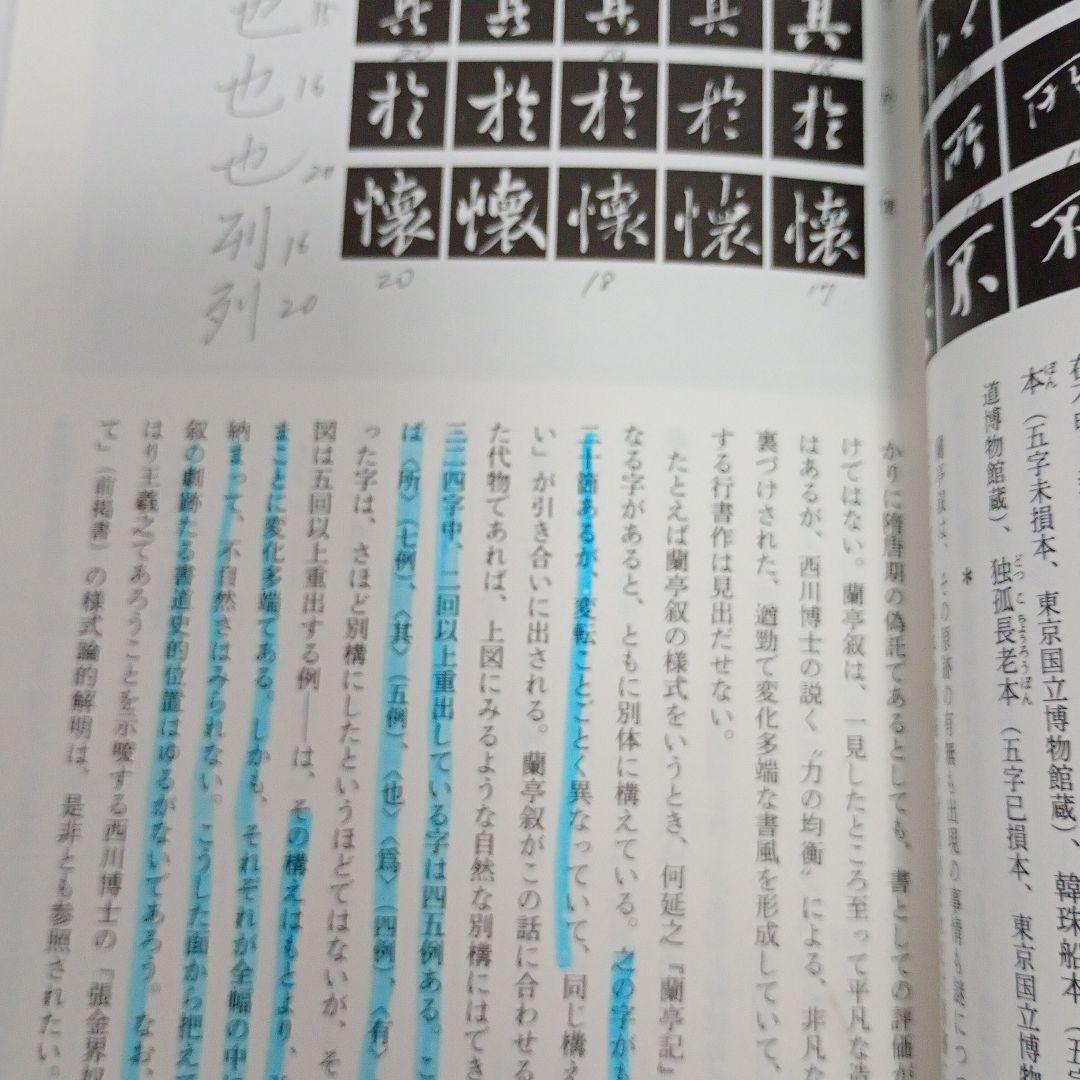 也 15
也 16
也 20
列 16
列 20
其 其 其 其 其
於 於 於 於 於
懐 懐 懐 懐 懐
20 18 17
本（五字未損本、東京国立博物館蔵）、韓珠船本（五
道博物館蔵）、独孤長老本（五字已損本、東京国立博
＊
かりに隋唐期の偽託であるとしても、書としての評価が
けではない。蘭亭叙は、一見したところ至って平凡な造
はあるが、西川博士の説く〝力の均衡〟による、非凡な
裏づけされた、遒勁で変化多端な書風を形成していて、
する行書作は見出だせない。
たとえば蘭亭叙の様式をいうとき、何延之『蘭亭記』
なる字があると、ともに別体に構えている。之の字がも
二十箇あるが、変転ことごとく異なっていて、同じ構え
い」が引き合いに出される。蘭亭叙がこの話に合わせる
た代物であれば、上図にみるような自然な別構にはでき
三二四字中、二回以上重出している字は四五例ある。こ
ば〈所〉（七例）、〈其〉（五例）、〈也〉〈為〉（四例）、〈有〉
った字は、さほど別構にしたというほどではないが、そ
図は五回以上重出する例――は、その構えはもとより、
まことに変化多端である。しかも、それぞれが全幅の中
納まって、不自然さはみられない。こうした面から把えて
叙の劇跡たる書道史的位置はゆるがないであろう。なお、
はり王羲之であろうことを示唆する西川博士の『張金界奴
て」（前掲書）の様式論的解明は、是非とも参照されたい。